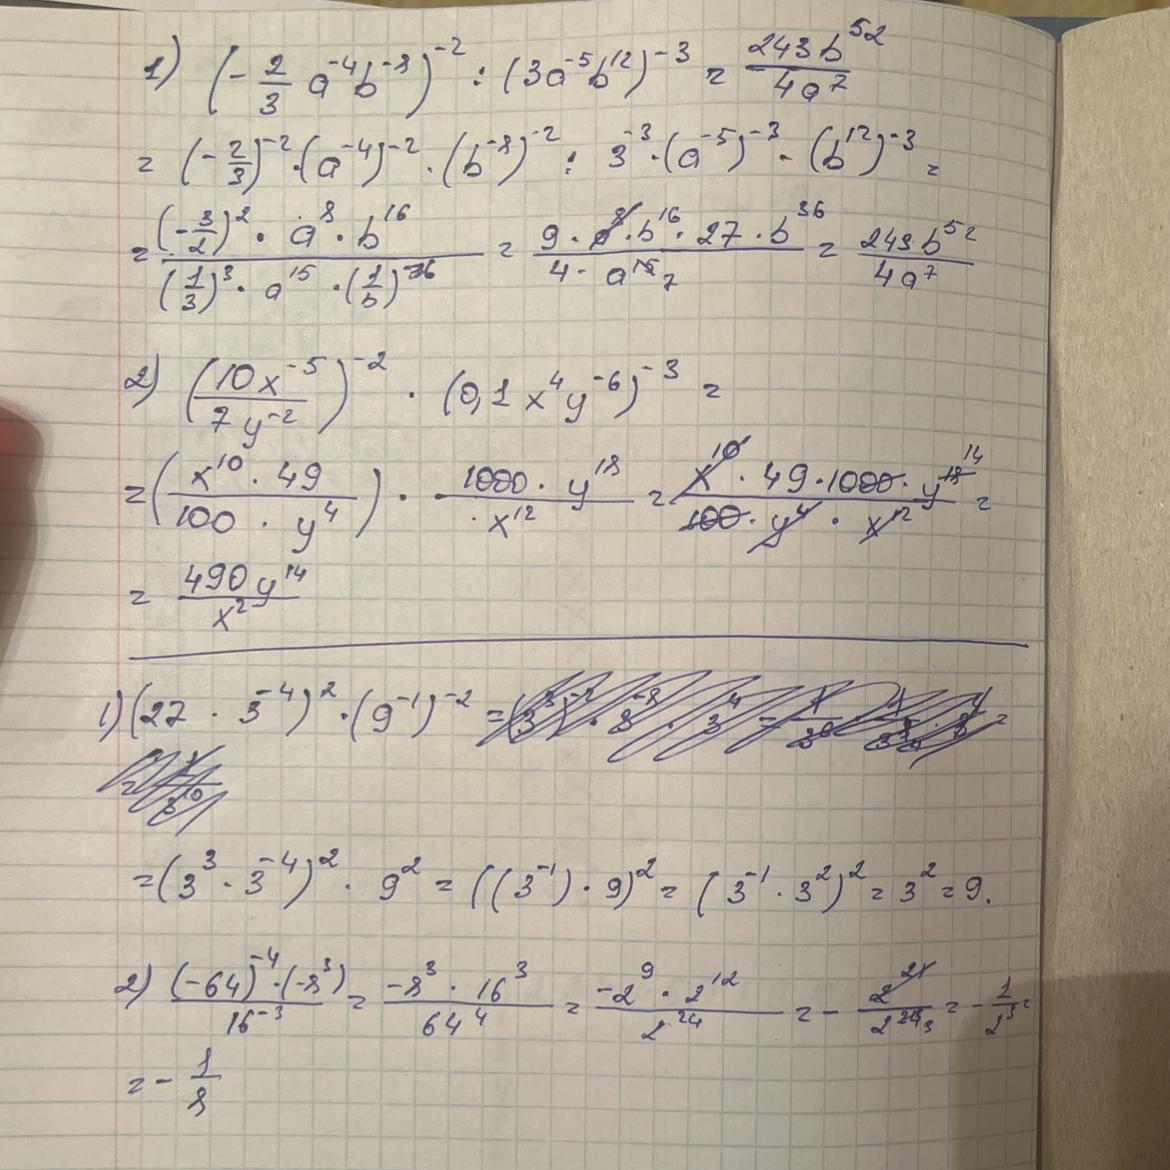 1) (-2/3 a^-4 b^-8)^-2 : (3a^-5 b^12)^-3 = 243b^52/4a^7
= (-2/3)^-2 · (a^-4)^-2 · (b^-8)^-2 : 3^-3 · (a^-5)^-3 · (b^12)^-3 =
= (-3/2)^2 · a^8 · b^16 / (1/3)^3 · a^15 · (1/b)^36 = 9 · a^8 · b^16 · 27 · b^36 / 4 · a^15 7 = 243b^52/4a^7
2) (10x^-5/7y^-2)^-2 · (0,1x^4 y^-6)^-3 =
= (x^10 · 49/100 · y^4) · 1000 · y^18/x^12 = x^10 · 49 · 1000 · y^18 14/100 · y^4 · x^12 =
= 490y^14/x^2
1) (27 · 3^-4)^2 · (9^-1)^-2 =
= (3^3 · 3^-4)^2 · 9^2 = ((3^-1) · 9)^2 = (3^-1 · 3^2)^2 = 3^2 = 9.
2) (-64)^-4 · (-8^3)/16^-3 = -8^3 · 16^3/64^4 = -2^9 · 2^12/2^24 = - 2^21/2^24 3 = - 1/2^3 =
= - 1/8